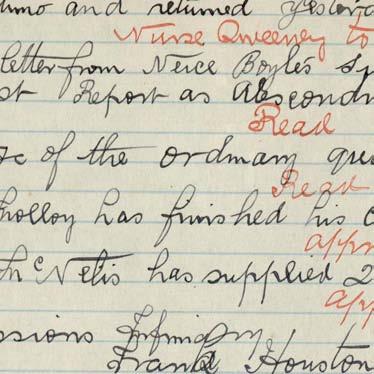 and returned
Nurse Sweeney to
letter from Neice Boyles
st Report as Abscond
Read
of the ordinary que
Read
holloy has finished his c
appr
McNelis has supplied 2
app
ssions Infirmary
Frank Houston